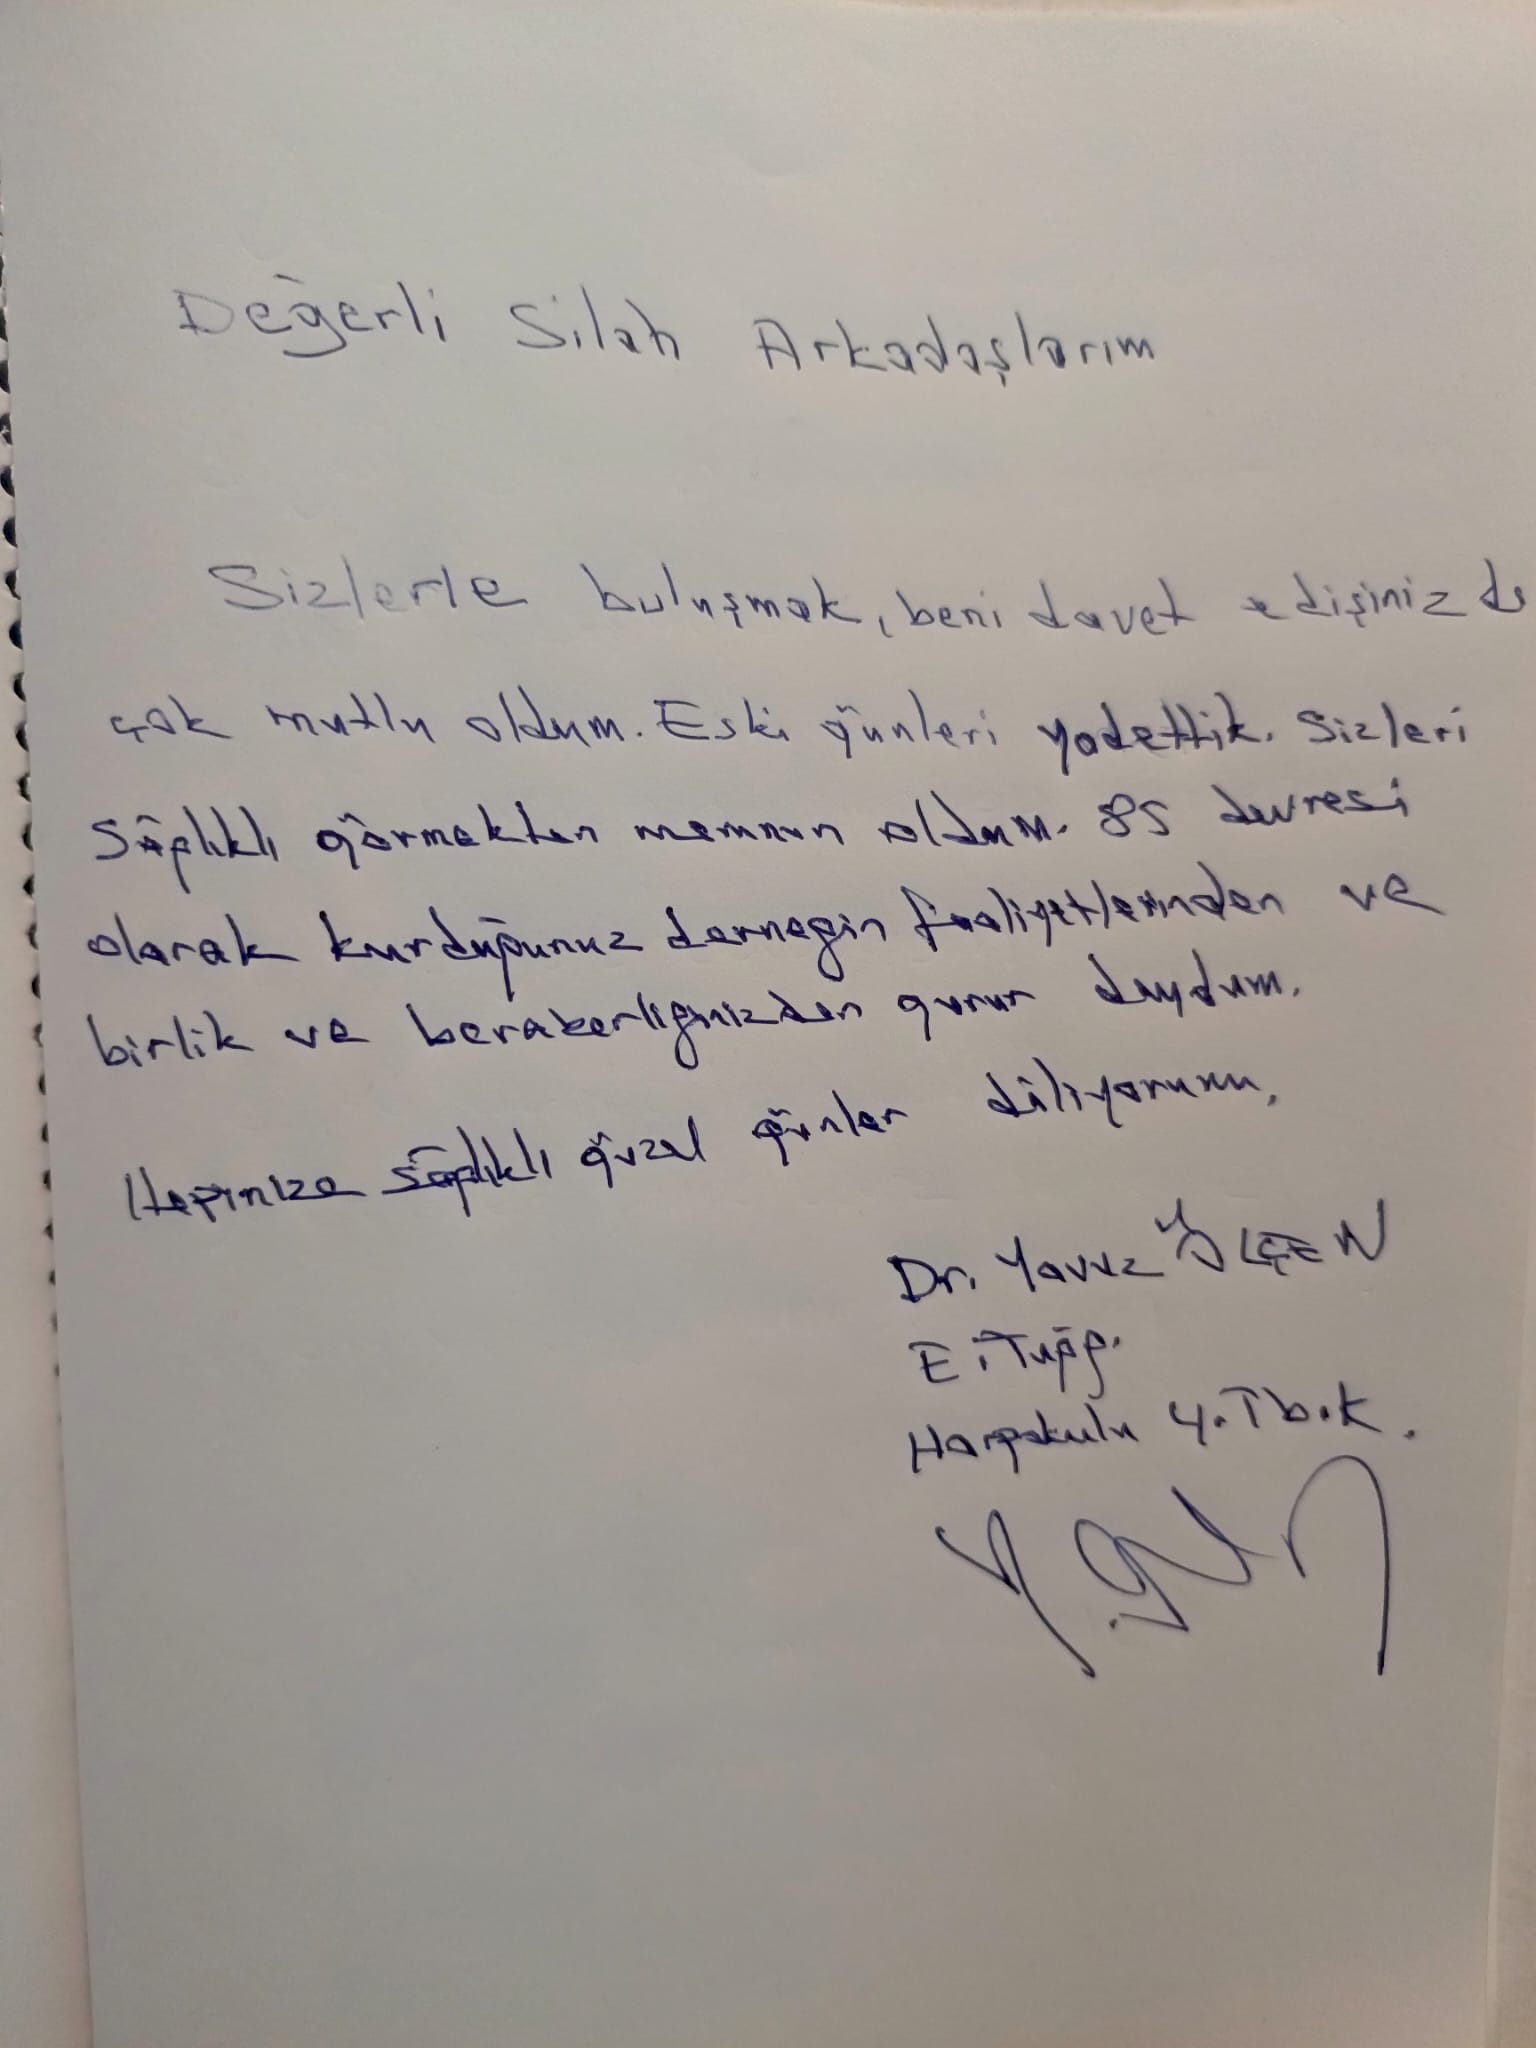 Değerli Silah Arkadaşlarım
Sizlerle buluşmak, beni davet edişinizde
çok mutlu oldum. Eski günleri yadettik. Sizleri
Sağlıklı görmekten memnun oldum. 85 devresi
olarak kurduğunuz derneğin faaliyetlerinden ve
birlik ve beraberliğinizden gurur duydum.
Hepinize sağlıklı güzel günler diliyorum.
Dr. Yavuz ÖLÇEN
E. Tuğg.
Harpokulu 4. Tb. K.